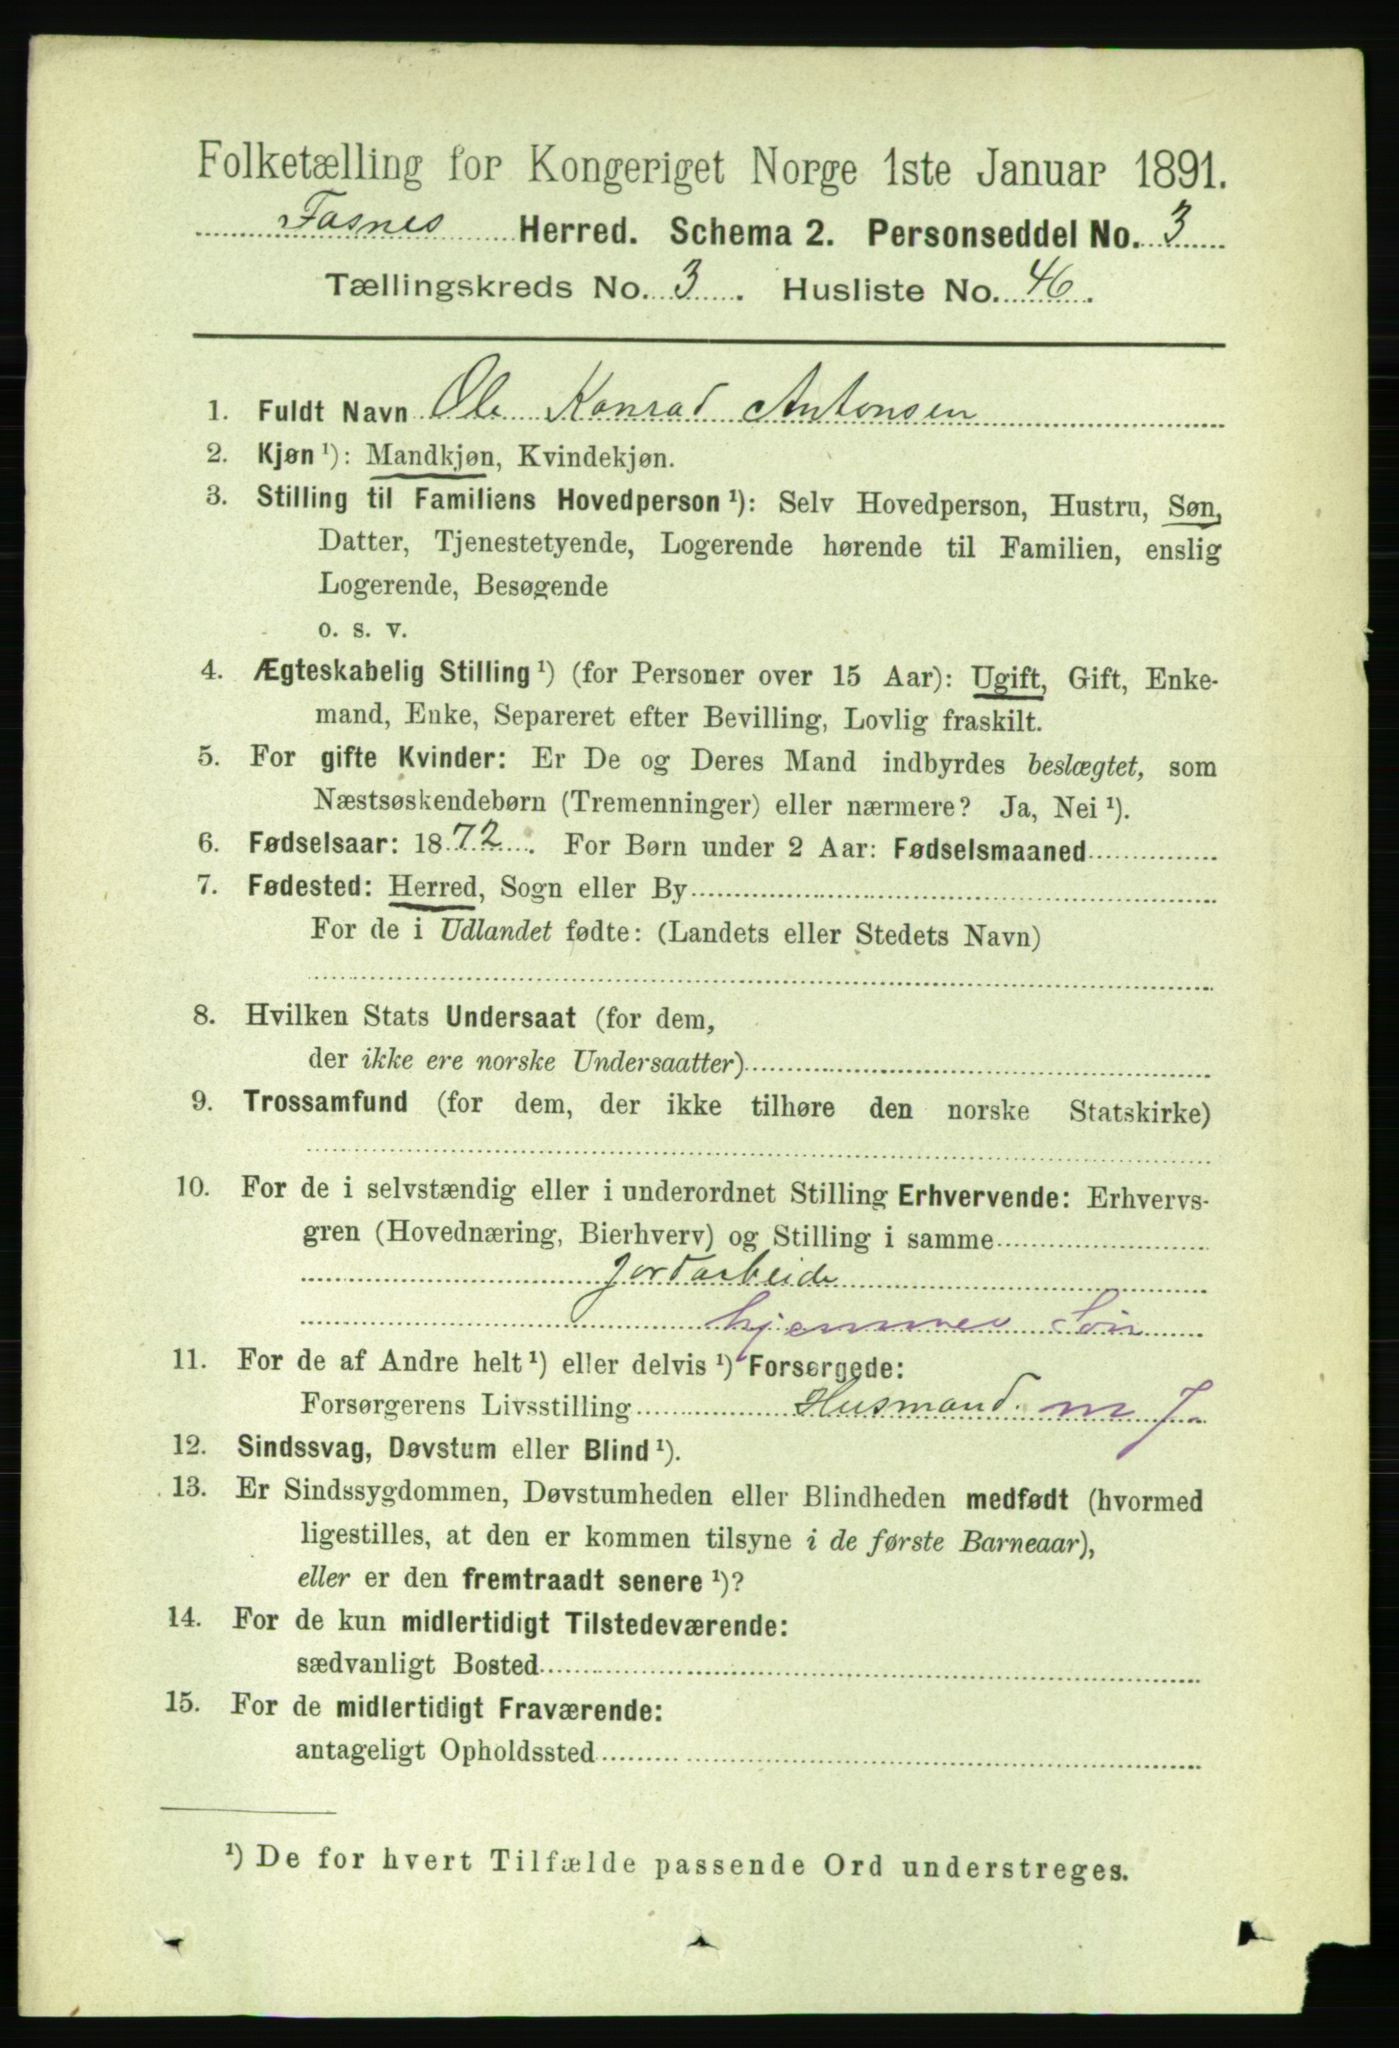 Folketælling for Kongeriget Norge 1ste Januar 1891.
Fosnes Herred. Schema 2. Personseddel No. 3
Tællingskreds No. 3. Husliste No. 46.
1. Fuldt Navn Ole Konrad Antonsen
2. Kjøn ¹): Mandkjøn, Kvindekjøn.
3. Stilling til Familiens Hovedperson ¹): Selv Hovedperson, Hustru, Søn,
Datter, Tjenestetyende, Logerende hørende til Familien, enslig
Logerende, Besøgende
o. s. v.
4. Ægteskabelig Stilling ¹) (for Personer over 15 Aar): Ugift, Gift, Enke-
mand, Enke, Separeret efter Bevilling, Lovlig fraskilt.
5. For gifte Kvinder: Er De og Deres Mand indbyrdes beslægtet, som
Næstsøskendebørn (Tremenninger) eller nærmere? Ja, Nei ¹).
6. Fødselsaar: 1872. For Børn under 2 Aar: Fødselsmaaned
7. Fødested: Herred, Sogn eller By
For de i Udlandet fødte: (Landets eller Stedets Navn)
8. Hvilken Stats Undersaat (for dem,
der ikke ere norske Undersaatter)
9. Trossamfund (for dem, der ikke tilhøre den norske Statskirke)
10. For de i selvstændig eller i underordnet Stilling Erhvervende: Erhvervs-
gren (Hovednæring, Bierhverv) og Stilling i samme
Jordarbeide
hjemmev Søn
11. For de af Andre helt ¹) eller delvis ¹) Forsørgede:
Forsørgerens Livsstilling Husmand m J
12. Sindssvag, Døvstum eller Blind ¹).
13. Er Sindssygdommen, Døvstumheden eller Blindheden medfødt (hvormed
ligestilles, at den er kommen tilsyne i de første Barneaar),
eller er den fremtraadt senere ¹)?
14. For de kun midlertidigt Tilstedeværende:
sædvanligt Bosted
15. For de midlertidigt Fraværende:
antageligt Opholdssted
¹) De for hvert Tilfælde passende Ord understreges.